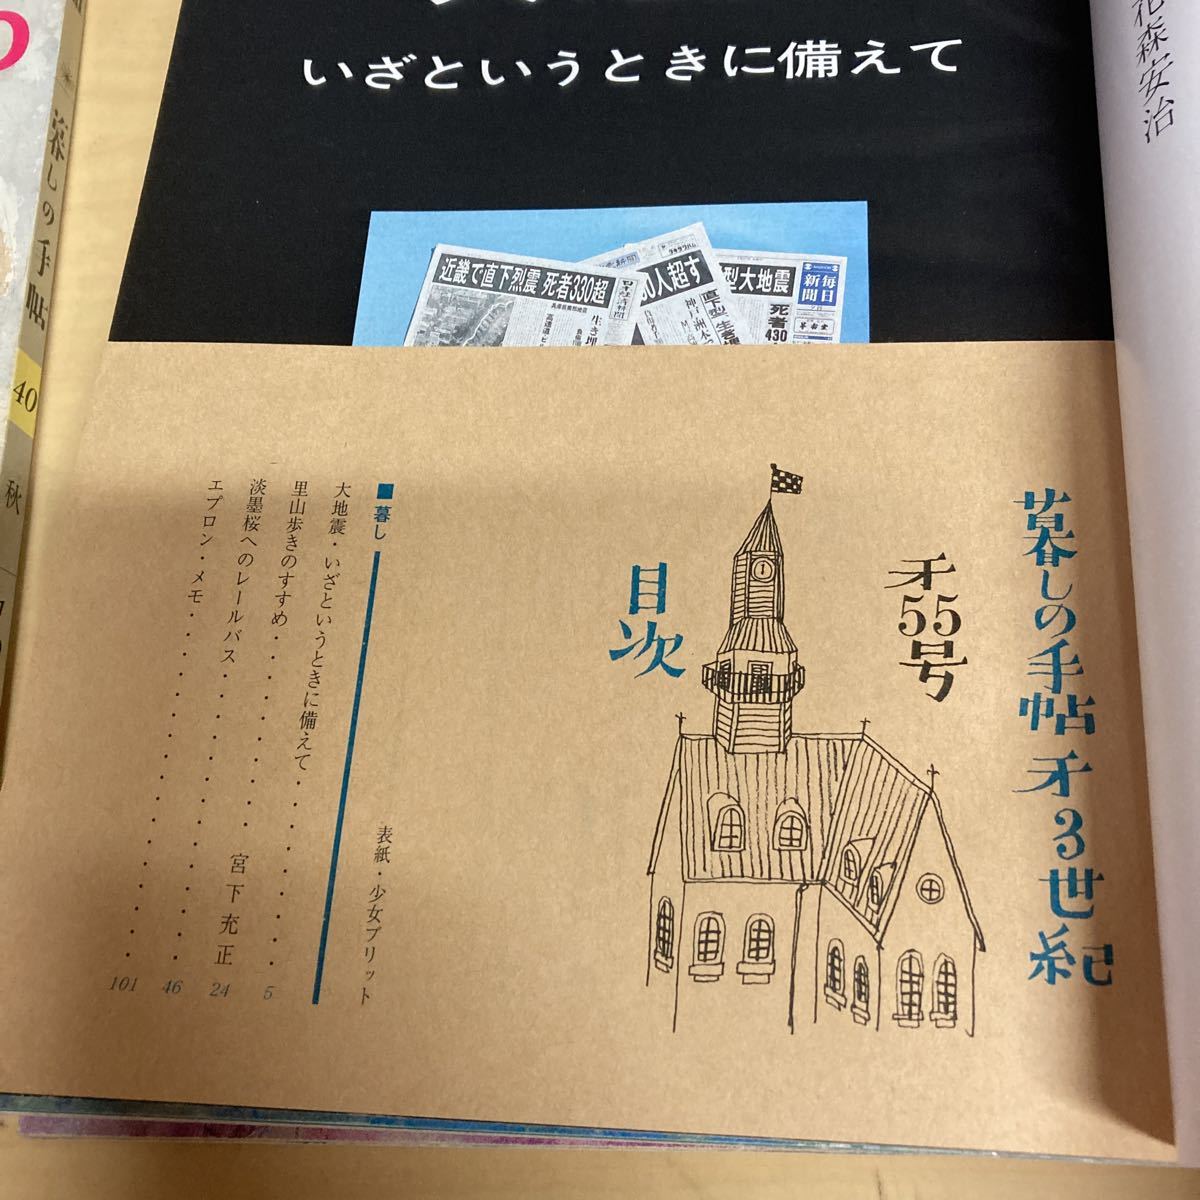 花森安治
いざというときに備えて
近畿で直下烈震 死者330超
日本経済新聞
0人超す
型大地震
毎日新聞
死者430
生き埋
高速道
神戸
洲本
直下型
暮しの手帖 第3世紀
第55号
目次
表紙・少女ブリット
■暮し
大地震・いざというときに備えて・・・・・・・・・5
里山歩きのすすめ・・・・・・・・・宮下充正 24
淡墨桜へのレールバス・・・・・・・・・46
エプロン・メモ・・・・・・・・・101
暮しの手帖
40
秋